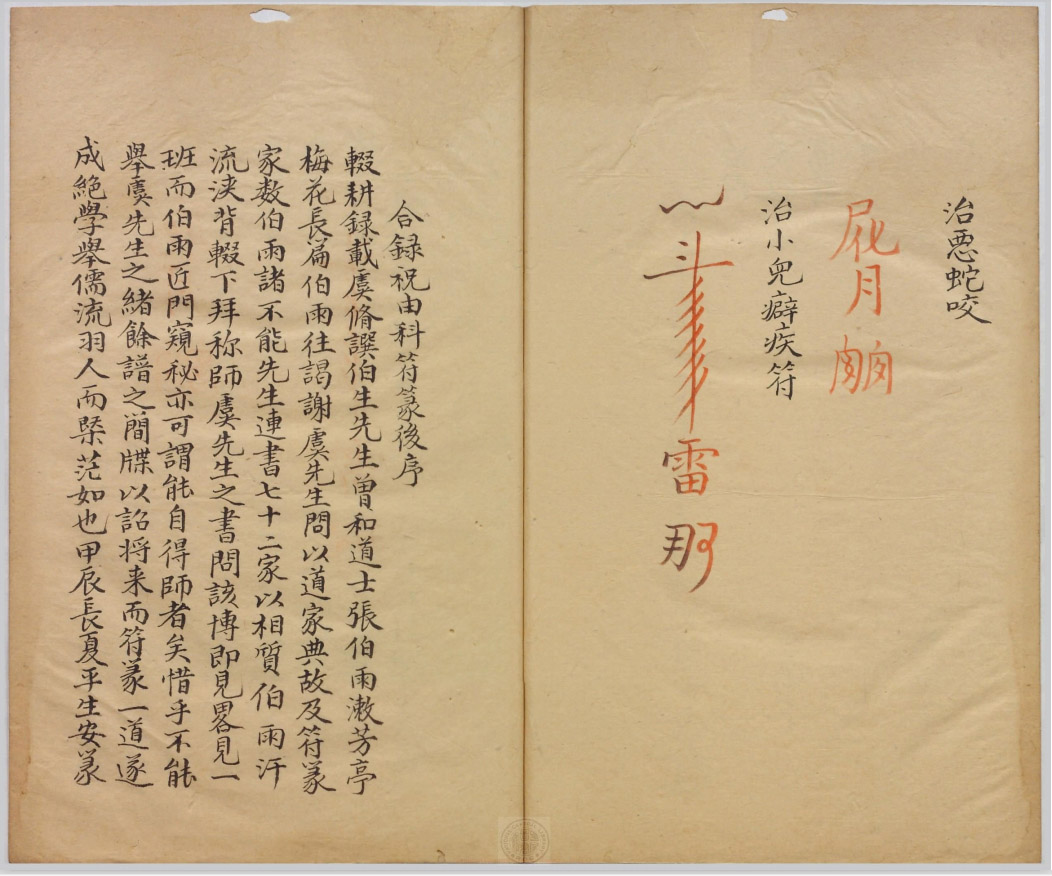 治惡蛇咬
治小兒癖疾符
雷
合録祝由科符篆後序
輟耕録載虞脩譔伯生先生曽和道士張伯雨漱芳亭
梅花長篇伯雨往謁謝虞先生問以道家典故及符篆
家数伯雨諸不能先生連書七十二家以相質伯雨汗
流浹背輟下拜称師虞先生之書問該博即見畧見一
班而伯雨近門窺秘亦可謂能自得師者矣惜乎不能
舉虞先生之緒餘譜之簡牒以詔将来而符篆一道遂
成絶學舉儒流羽人而槩茫如也甲辰長夏平生安篆